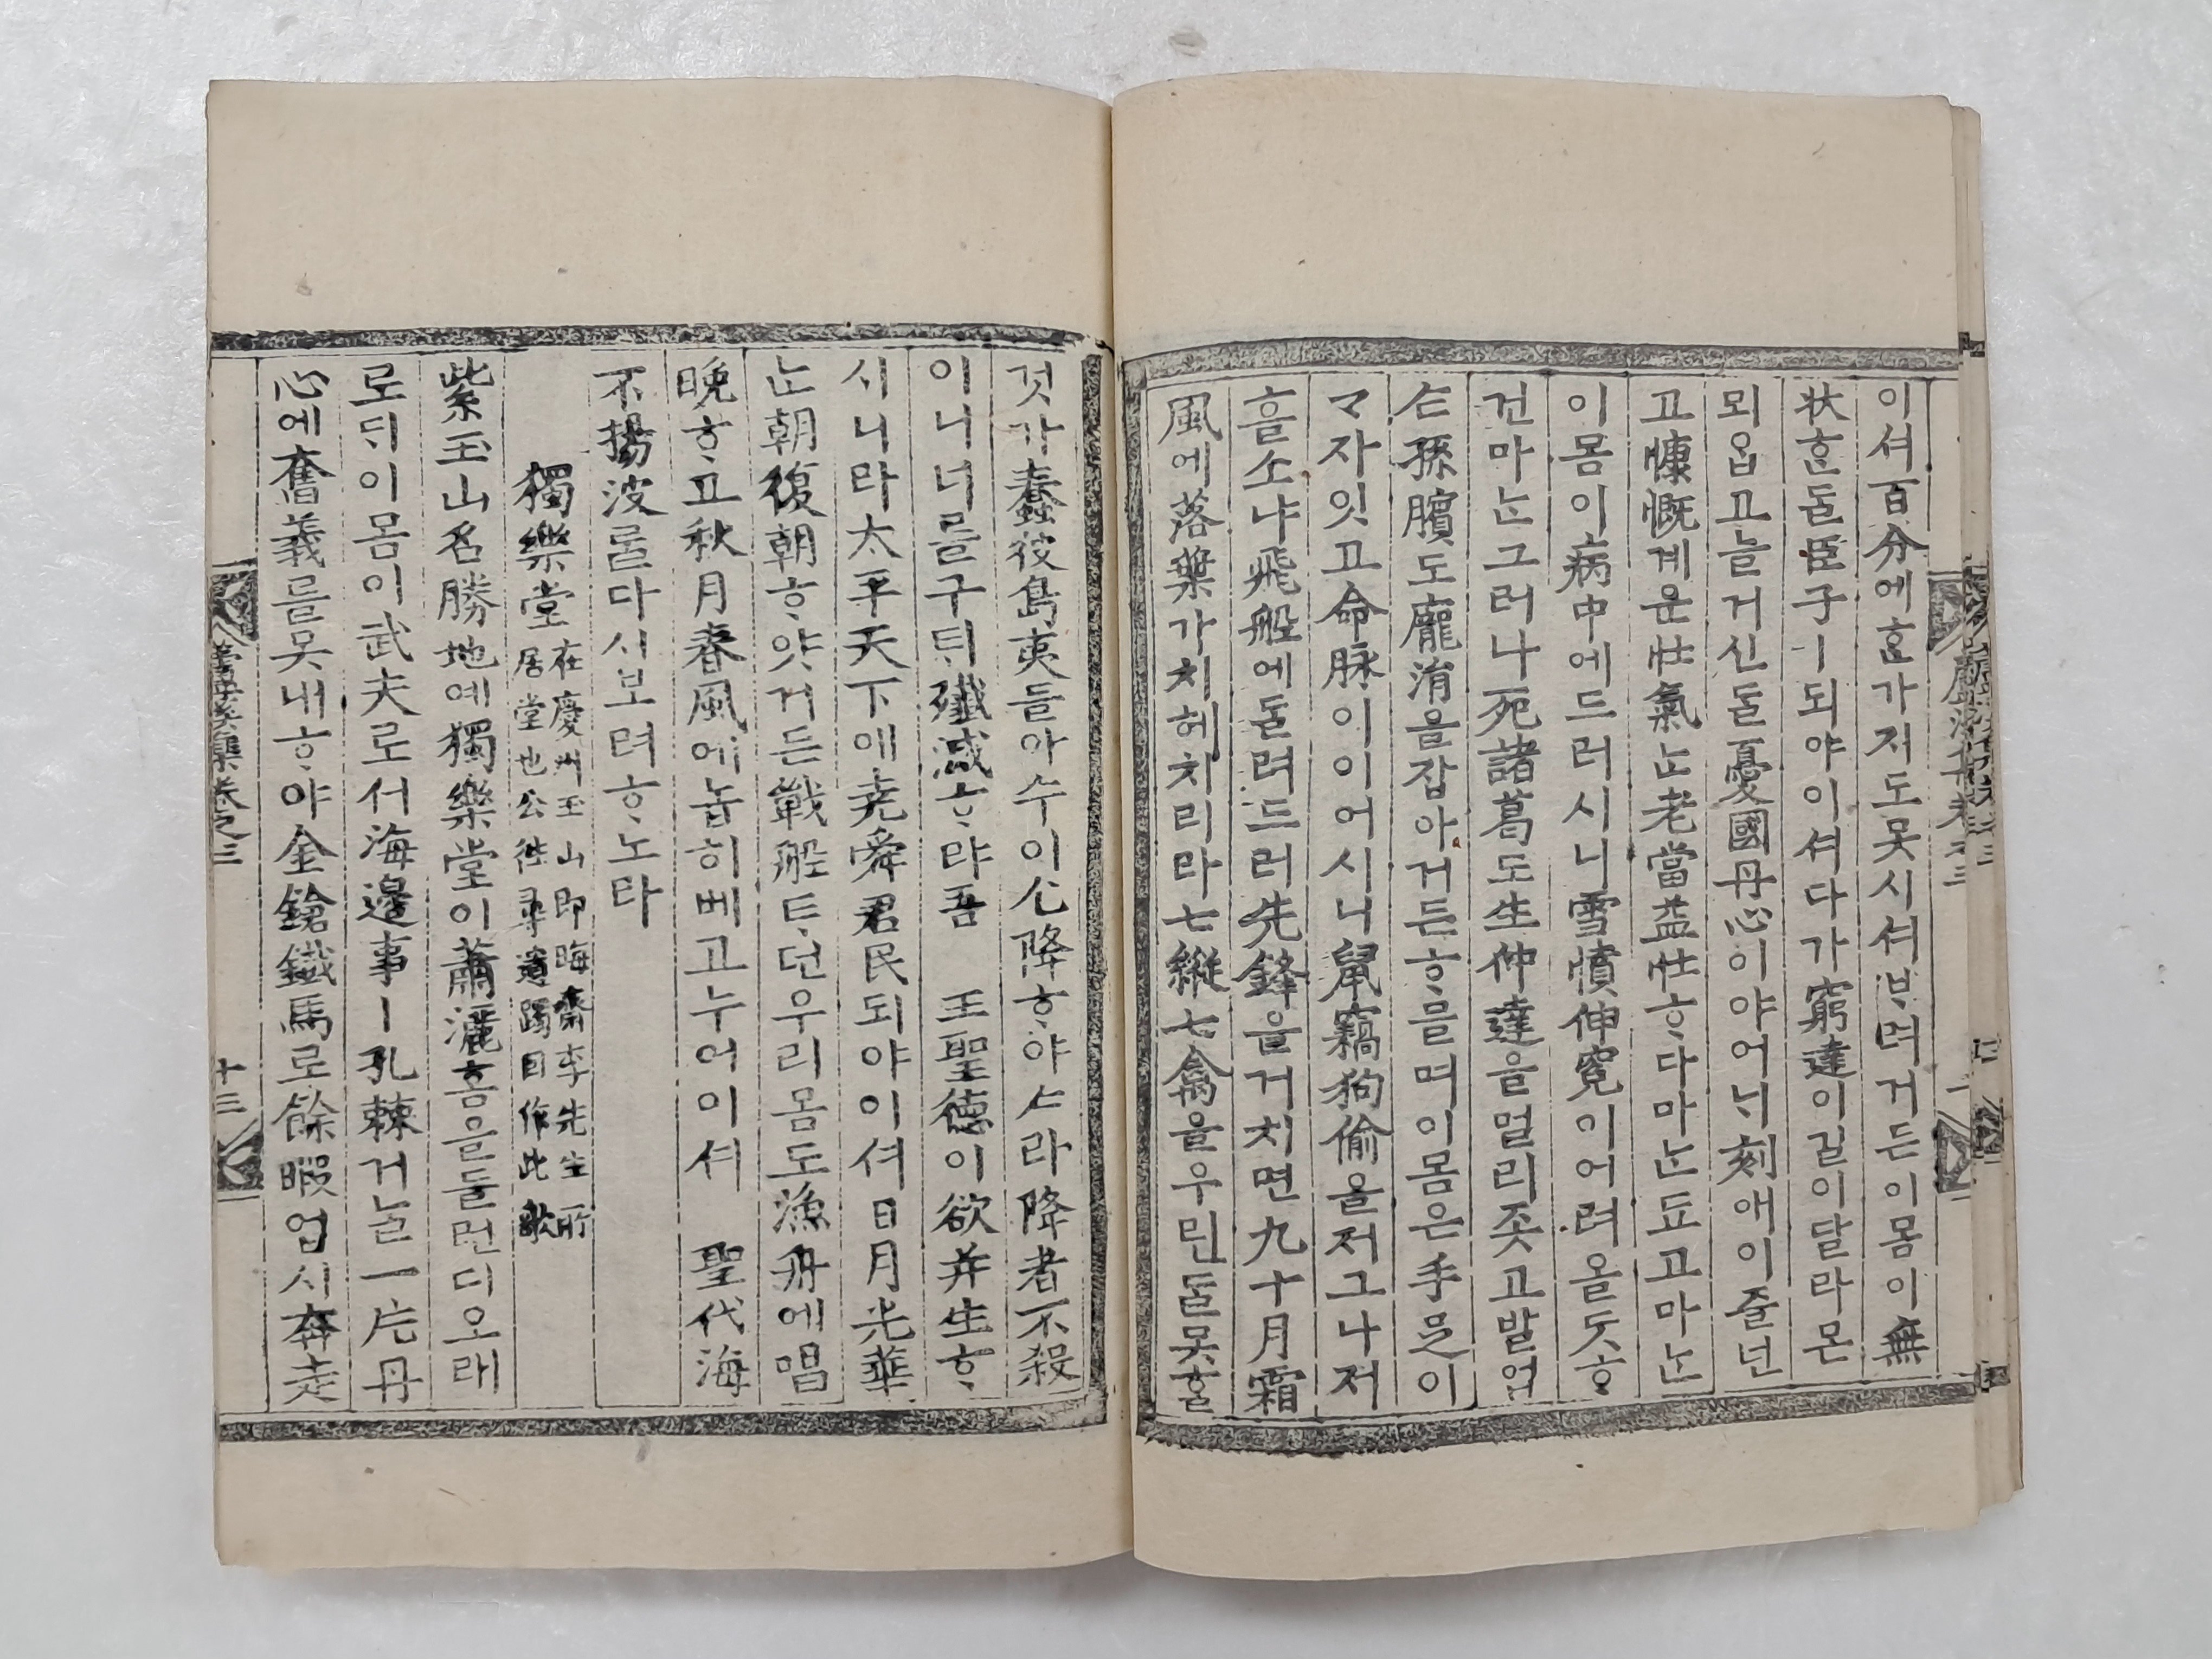 이셔百分에ᄒᆞᆫ가지도못시셔ᄇᆞ려거든이몸이無
狀ᄒᆞᆫᄃᆞᆯ臣子ㅣ되야이셔다가窮達이길이달라몬
뫼ᄋᆞᆸ고늘거신ᄃᆞᆯ憂國丹心이야어ᄂᆡ刻애이즐넌
고慷慨계운壯氣ᄂᆞᆫ老當益壯ᄒᆞ다마ᄂᆞᆫ됴고마ᄂᆞᆫ
이몸이病中에드러시니雪憤伸寃이어려올ᄃᆞᆺᄒᆞ
건마ᄂᆞᆫ그러나死諸葛도生仲達을멀리좃고발업
ᄉᆞᆫ孫臏도龐涓을잡아거든ᄒᆞ믈며이몸은手足이
ᄀᆞ자잇고命脉이이어시니鼠竊狗偷을저그나저
흘소냐飛船에ᄃᆞᆯ려드러先鋒을거치면九十月霜
風에落葉가치헤치리라七縱七禽을우린ᄃᆞᆯ못ᄒᆞᆯ
것가蠢彼島夷들아수이乞降ᄒᆞ야ᄉᆞ라降者不殺
이니너를구ᄐᆡ殲滅ᄒᆞ랴吾 王聖德이欲并生ᄒᆞ
시니라太平天下애堯舜君民되야이셔日月光華
ᄂᆞᆫ朝復朝ᄒᆞ얏거든戰船ᄐᆞ던우리몸도漁舟에唱
晩ᄒᆞ고秋月春風에놉히베고누어이셔 聖代海
不揚波ᄅᆞᆯ다시보려ᄒᆞ노라
獨樂堂 在慶州玉山即晦齋李先生所
居堂也公徃尋遺躅因作此歌
紫玉山名勝地예獨樂堂이蕭灑홈을들런디오래
로ᄃᆡ이몸이武夫로서海邊事ㅣ孔棘거늘一片丹
心에奮義를못내ᄒᆞ야金鎗鐵馬로餘暇업시奔走
卷之三
十三